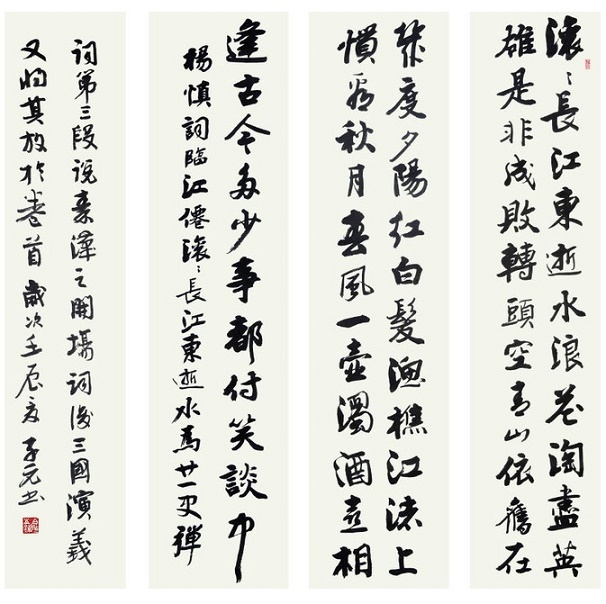 滚〻長江東逝水浪花淘盡英
雄是非成敗轉頭空青山依舊在
幾度夕陽紅白髮漁樵江渚上
慣看秋月春風一壺濁酒喜相
逢古今多少事都付笑談中
楊慎詞臨江僊滚〻長江東逝水為廿一史彈
詞第三段說秦漢之開場詞後三國演義
又將其放於卷首歲次壬辰夏子元書